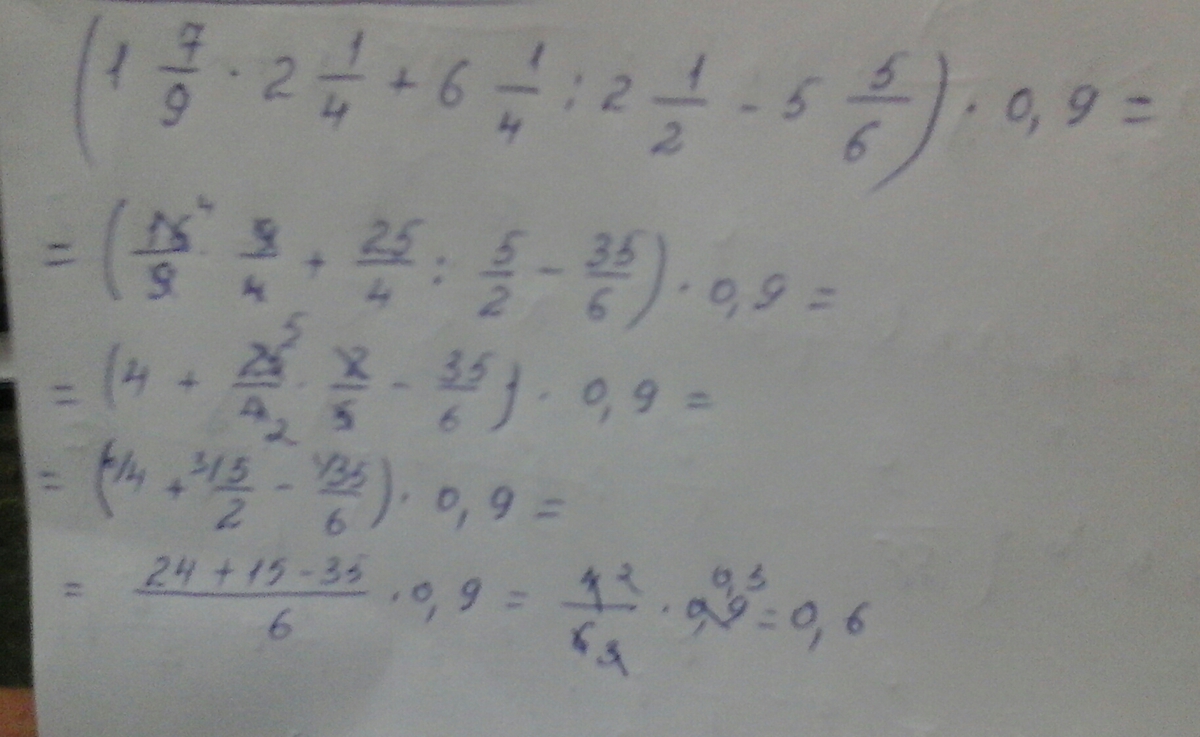 (1 7/9 · 2 1/4 + 6 1/4 : 2 1/2 - 5 5/6) · 0,9 =
= (16/9 ⁴ · 9/4 + 25/4 : 5/2 - 35/6) · 0,9 =
= (4 + 25/4 ⁵₂ · 2/5 - 35/6) · 0,9 =
= (⁶⁾4 + ³⁾5/2 - ¹⁾35/6) · 0,9 =
= (24 + 15 - 35)/6 · 0,9 = 4/6 ²₃ · 0,9 0,3 = 0,6